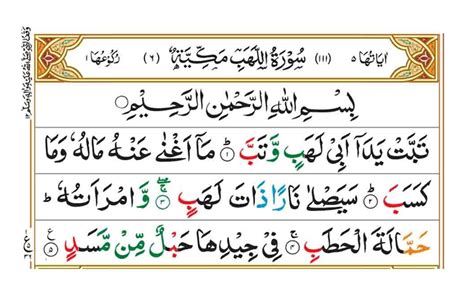 اٰيَاتُهَا ٥ (١١١) سُوْرَةُ اللَّهَبِ مَكِّيَّةٌ (٦) رُكُوْعُهَا ١
بِسْمِ اللّٰهِ الرَّحْمٰنِ الرَّحِيْمِ
تَبَّتْ يَدَاۤ اَبِيْ لَهَبٍ وَّتَبَّ ؕ ١ مَاۤ اَغْنٰى عَنْهُ مَالُهٗ وَمَا
كَسَبَ ؕ ٢ سَيَصْلٰى نَارًا ذَاتَ لَهَبٍ ۚ ٣ وَّامْرَاَتُهٗ ؕ
حَمَّالَةَ الْحَطَبِ ۚ ٤ فِيْ جِيْدِهَا حَبْلٌ مِّنْ مَّسَدٍ ٥ ع